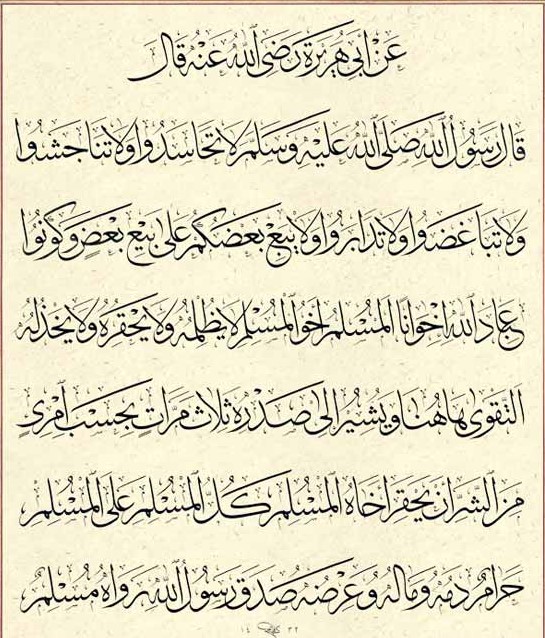 عَنْ أَبِي هُرَيْرَةَ رَضِيَ اللّٰهُ عَنْهُ قَالَ
قَالَ رَسُولُ اللّٰهِ صَلَّى اللّٰهُ عَلَيْهِ وَسَلَّمَ لَا تَحَاسَدُوا وَلَا تَنَاجَشُوا
وَلَا تَبَاغَضُوا وَلَا تَدَابَرُوا وَلَا يَبِعْ بَعْضُكُمْ عَلَى بَيْعِ بَعْضٍ وَكُونُوا
عِبَادَ اللّٰهِ اِخْوَانًا اَلْمُسْلِمُ اَخُو الْمُسْلِمِ لَا يَظْلِمُهُ وَلَا يَحْقِرُهُ وَلَا يَخْذُلُهُ
اَلتَّقْوَى هَاهُنَا وَيُشِيرُ اِلَى صَدْرِهِ ثَلَاثَ مَرَّاتٍ بِحَسْبِ امْرِئٍ
مِنَ الشَّرِّ اَنْ يَحْقِرَ اَخَاهُ الْمُسْلِمَ كُلُّ الْمُسْلِمِ عَلَى الْمُسْلِمِ
حَرَامٌ دَمُهُ وَمَالُهُ وَعِرْضُهُ صَدَقَ رَسُولُ اللّٰهِ رَوَاهُ مُسْلِمٌ